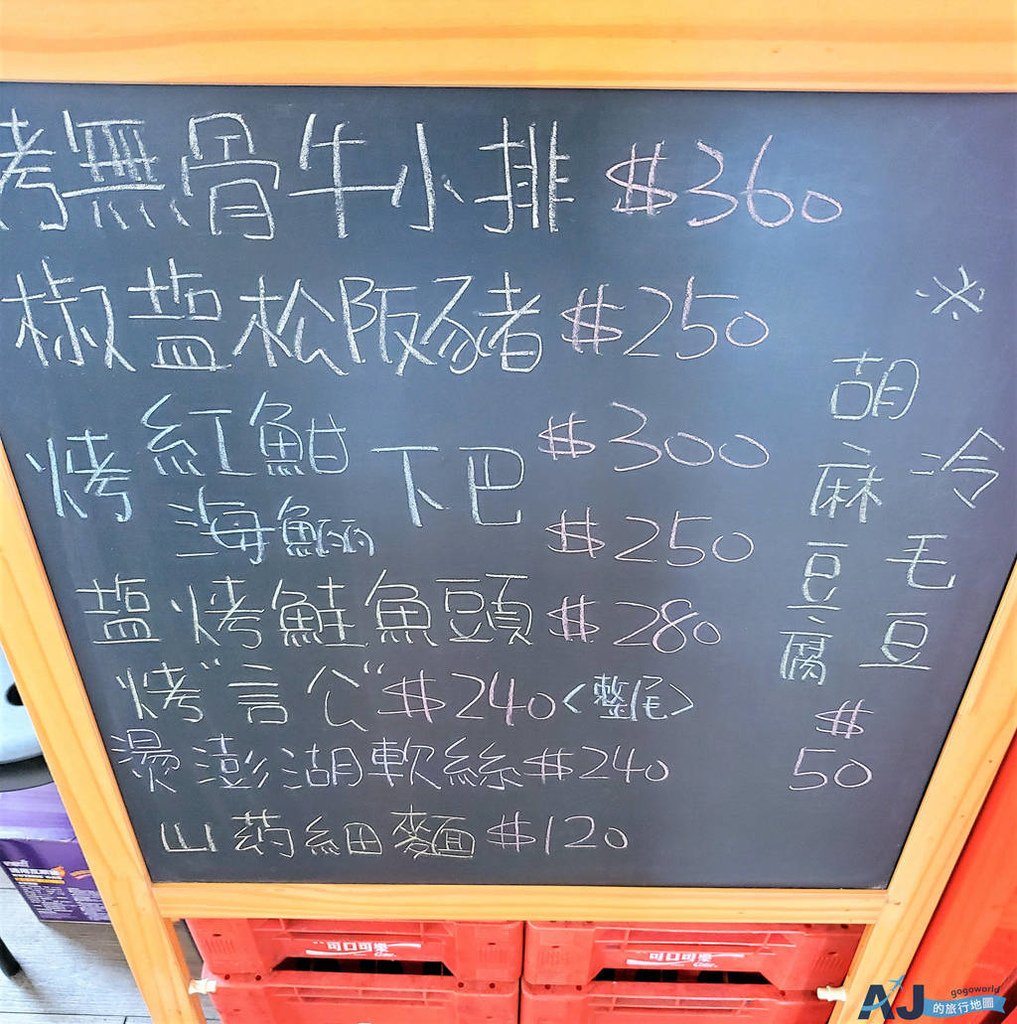 烤無骨牛小排 $360
椒盐松阪豬 $250
烤 紅魽 下巴 $300
海鱺 $250
盐烤鮭魚頭 $280
烤"言公" $240 <整尾>
燙澎湖軟絲 $240
山药細麵 $120
※
胡麻豆腐
冷毛豆
$50
可口可樂
可口可樂
AJ的旅行地圖
gogoworld